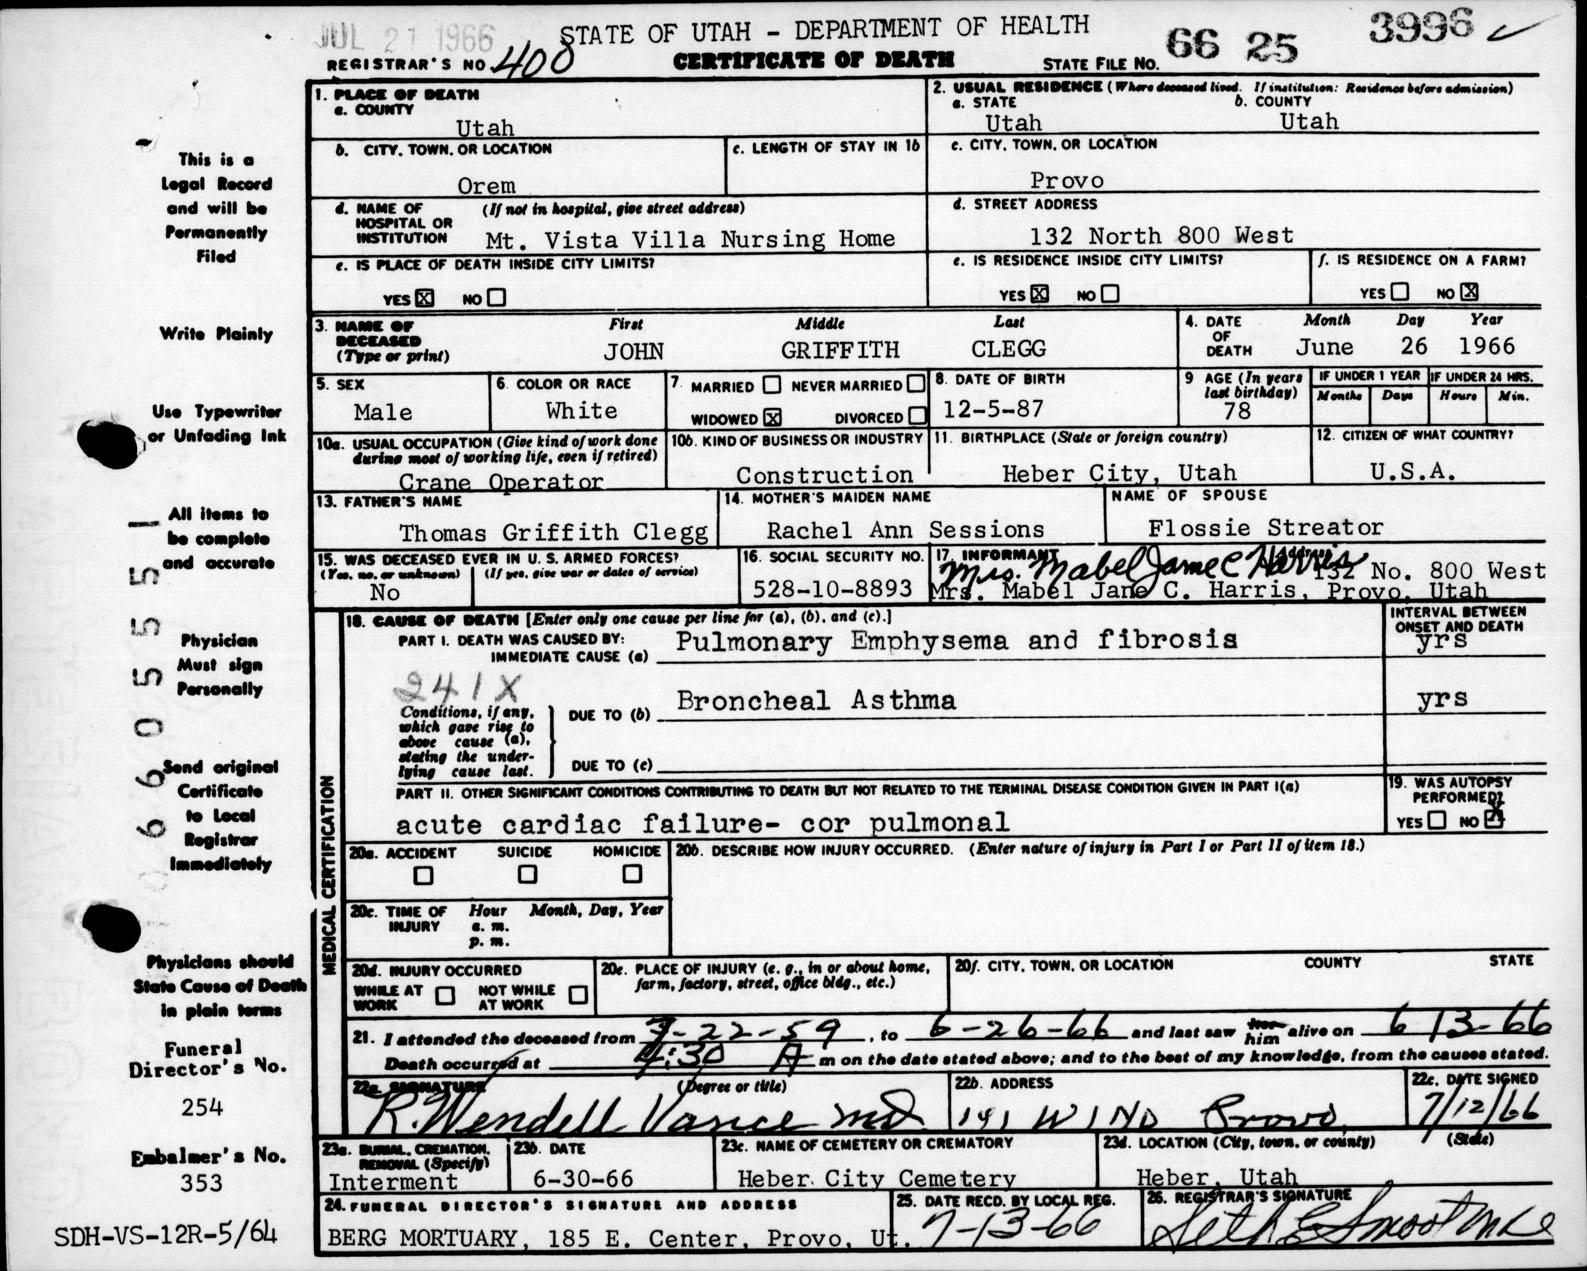 JUL 21 1966
STATE OF UTAH - DEPARTMENT OF HEALTH
66 25 3996
REGISTRAR'S NO. 400
CERTIFICATE OF DEATH
STATE FILE NO.
1. PLACE OF DEATH
a. COUNTY
Utah
2. USUAL RESIDENCE (Where deceased lived. If institution: Residence before admission)
a. STATE b. COUNTY
Utah Utah
b. CITY, TOWN, OR LOCATION
Orem
c. LENGTH OF STAY IN 1b
c. CITY, TOWN, OR LOCATION
Provo
d. NAME OF HOSPITAL OR INSTITUTION (If not in hospital, give street address)
Mt. Vista Villa Nursing Home
d. STREET ADDRESS
132 North 800 West
e. IS PLACE OF DEATH INSIDE CITY LIMITS?
YES X NO
e. IS RESIDENCE INSIDE CITY LIMITS?
YES X NO
f. IS RESIDENCE ON A FARM?
YES NO X
3. NAME OF DECEASED (Type or print)
First Middle Last
JOHN GRIFFITH CLEGG
4. DATE OF DEATH
Month Day Year
June 26 1966
5. SEX
Male
6. COLOR OR RACE
White
7. MARRIED NEVER MARRIED
WIDOWED X DIVORCED
8. DATE OF BIRTH
12-5-87
9 AGE (In years last birthday)
78
IF UNDER 1 YEAR
Months Days
IF UNDER 24 HRS.
Hours Min.
10a. USUAL OCCUPATION (Give kind of work done during most of working life, even if retired)
Crane Operator
10b. KIND OF BUSINESS OR INDUSTRY
Construction
11. BIRTHPLACE (State or foreign country)
Heber City, Utah
12. CITIZEN OF WHAT COUNTRY?
U.S.A.
13. FATHER'S NAME
Thomas Griffith Clegg
14. MOTHER'S MAIDEN NAME
Rachel Ann Sessions
NAME OF SPOUSE
Flossie Streator
15. WAS DECEASED EVER IN U. S. ARMED FORCES?
(Yes, no, or unknown) (If yes, give war or dates of service)
No
16. SOCIAL SECURITY NO.
528-10-8893
17. INFORMANT
Mrs. Mabel Jane C Harris
132 No. 800 West
Mrs. Mabel Jane C. Harris, Provo, Utah
MEDICAL CERTIFICATION
18. CAUSE OF DEATH [Enter only one cause per line for (a), (b), and (c).]
INTERVAL BETWEEN ONSET AND DEATH
PART I. DEATH WAS CAUSED BY:
IMMEDIATE CAUSE (a) Pulmonary Emphysema and fibrosis yrs
241X
Conditions, if any, which gave rise to above cause (a), stating the underlying cause last.
DUE TO (b) Broncheal Asthma yrs
DUE TO (c)
PART II. OTHER SIGNIFICANT CONDITIONS CONTRIBUTING TO DEATH BUT NOT RELATED TO THE TERMINAL DISEASE CONDITION GIVEN IN PART I(a)
acute cardiac failure- cor pulmonal
19. WAS AUTOPSY PERFORMED?
YES NO X
20a. ACCIDENT SUICIDE HOMICIDE
20b. DESCRIBE HOW INJURY OCCURRED. (Enter nature of injury in Part I or Part II of item 18.)
20c. TIME OF INJURY Hour Month, Day, Year
a. m.
p. m.
20d. INJURY OCCURRED
WHILE AT WORK NOT WHILE AT WORK
20e. PLACE OF INJURY (e. g., in or about home, farm, factory, street, office bldg., etc.)
20f. CITY, TOWN, OR LOCATION COUNTY STATE
21. I attended the deceased from 7-22-59, to 6-26-66 and last saw her him alive on 6 13-66
Death occurred at 4:30 A m on the date stated above; and to the best of my knowledge, from the causes stated.
22a. SIGNATURE (Degree or title)
R. Wendell Vance MD
22b. ADDRESS
191 W 1 No Provo
22c. DATE SIGNED
7/12/66
23a. BURIAL, CREMATION, REMOVAL (Specify)
Interment
23b. DATE
6-30-66
23c. NAME OF CEMETERY OR CREMATORY
Heber City Cemetery
23d. LOCATION (City, town, or county) (State)
Heber, Utah
24. FUNERAL DIRECTOR'S SIGNATURE AND ADDRESS
BERG MORTUARY, 185 E. Center, Provo, Ut.
25. DATE RECD. BY LOCAL REG.
7-13-66
26. REGISTRAR'S SIGNATURE
This is a
Legal Record
and will be
Permanently
Filed
Write Plainly
Use Typewriter
or Unfading Ink
All items to
be complete
and accurate
Physician
Must sign
Personally
Send original
Certificate
to Local
Registrar
Immediately
Physicians should
State Cause of Death
in plain terms
Funeral
Director's No.
254
Embalmer's No.
353
SDH-VS-12R-5/64